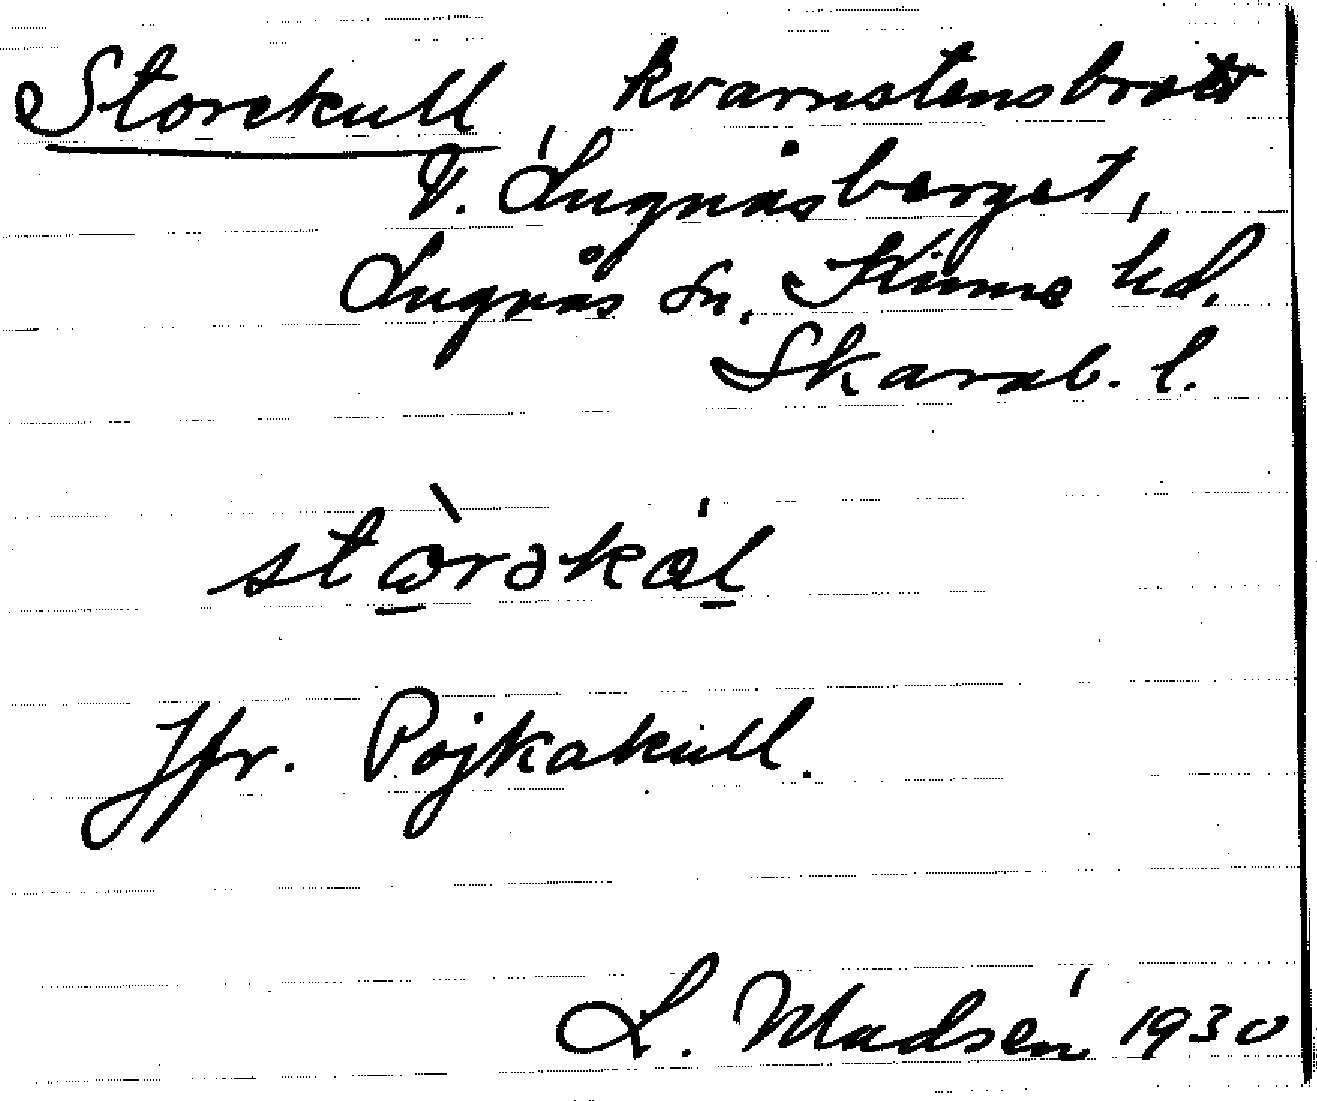 Storekull kvarnstensbrott
V. Lugnåsberget,
Lugnås sn. Kinne hd.
Skarab. l.
stòrəkál
Jfr. Pojkakull.
L. Madsén 1930